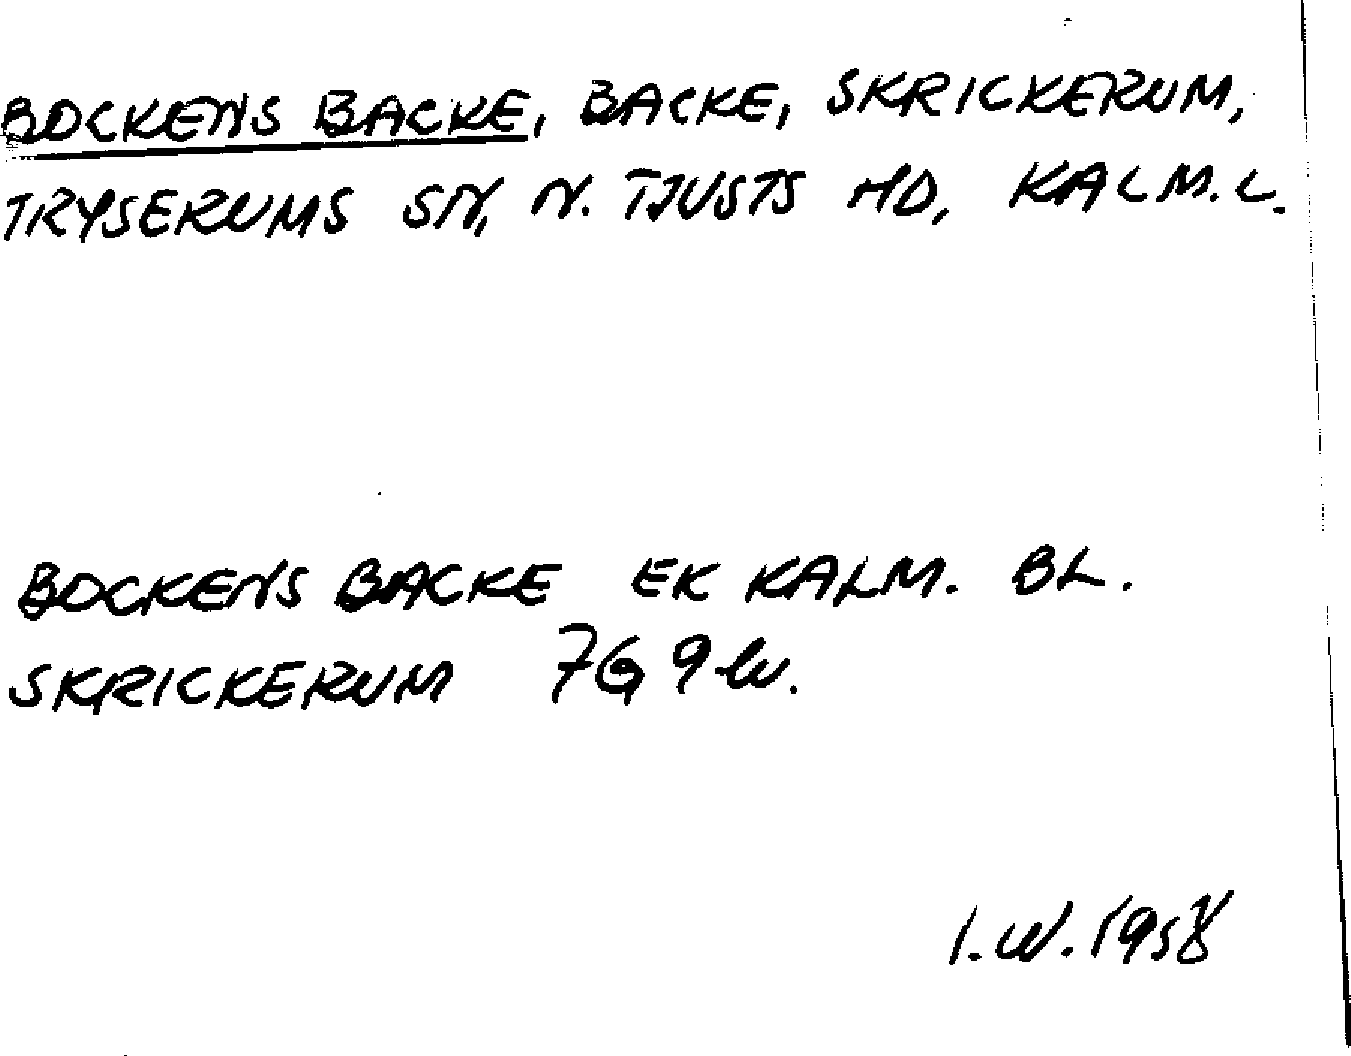 BOCKENS BACKE, BACKE, SKRICKERUM,
TRYSERUMS SN, N. TJUSTS HD, KALM. L.
BOCKENS BACKE EK KALM. BL.
SKRICKERUM 7G 9 
I.W. 1958